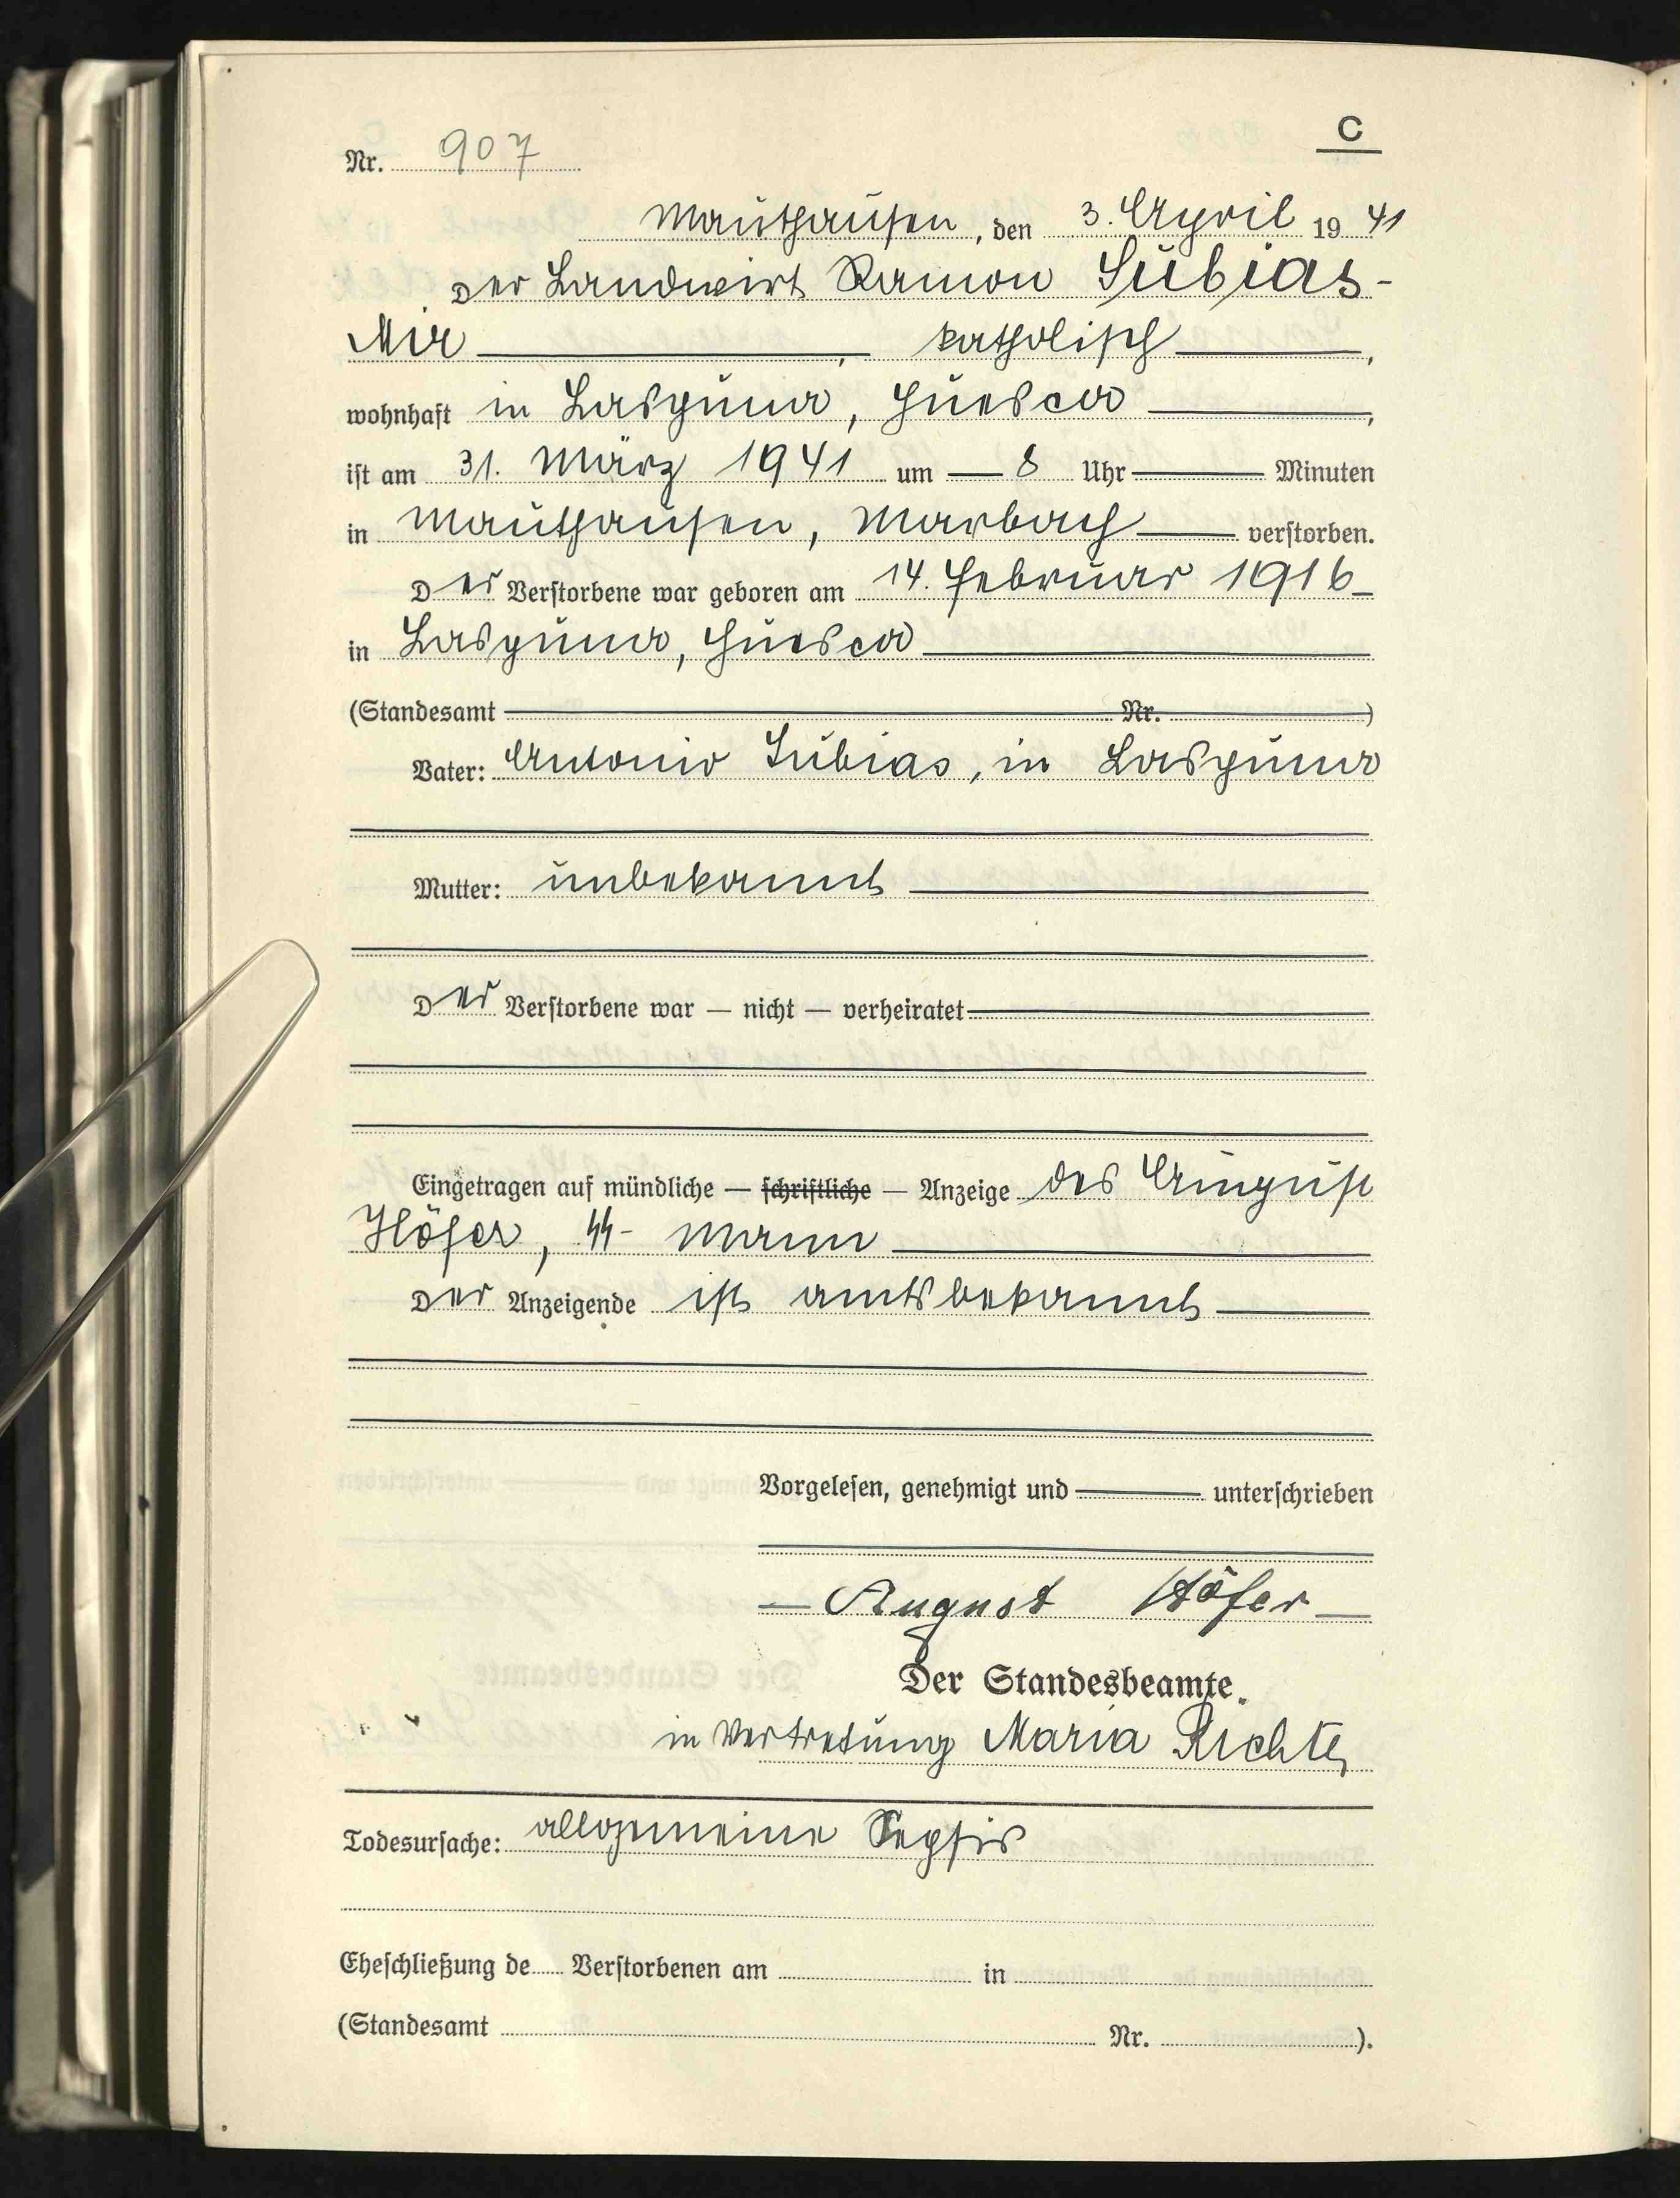 C
Nr. 907
Mauthausen, den 3. April 19 41
Der Landwirt Ramon Subias-
Mir, katholisch,
wohnhaft in Laspuna, Huesca,
ist am 31. März 1941 um 8 Uhr Minuten
in Mauthausen, Marbach verstorben.
Der Verstorbene war geboren am 14. Februar 1916
in Laspuna, Huesca
(Standesamt Nr. )
Vater: Antonio Subias, in Laspuna
Mutter: unbekannt
Der Verstorbene war — nicht — verheiratet
Eingetragen auf mündliche — schriftliche — Anzeige des August
Höfer, SS- Mann
Der Anzeigende ist amtsbekannt
Vorgelesen, genehmigt und unterschrieben
August Höfer
Der Standesbeamte
in Vertretung Maria Richter
Todesursache: allgemeine Sepsis
Eheschließung de Verstorbenen am in
(Standesamt Nr. ).